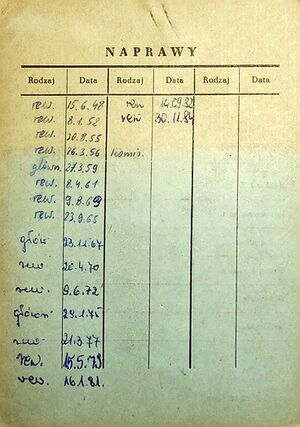 NAPRAWY
Rodzaj Data Rodzaj Data Rodzaj Data
rew. 15.6.48 rew 14.09.82
rew. 8.1.52 rew 30.11.84
rew. 30.8.55
rew. 26.3.56
główn. 27.3.59
rew. 8.4.61
rew. 9.8.63
rew. 23.9.65
głów 23.11.67
rew 20.4.70
rew. 9.6.72
główn 29.1.75
rew 21.3.77
rew. 15.5.79
rew. 16.1.81.